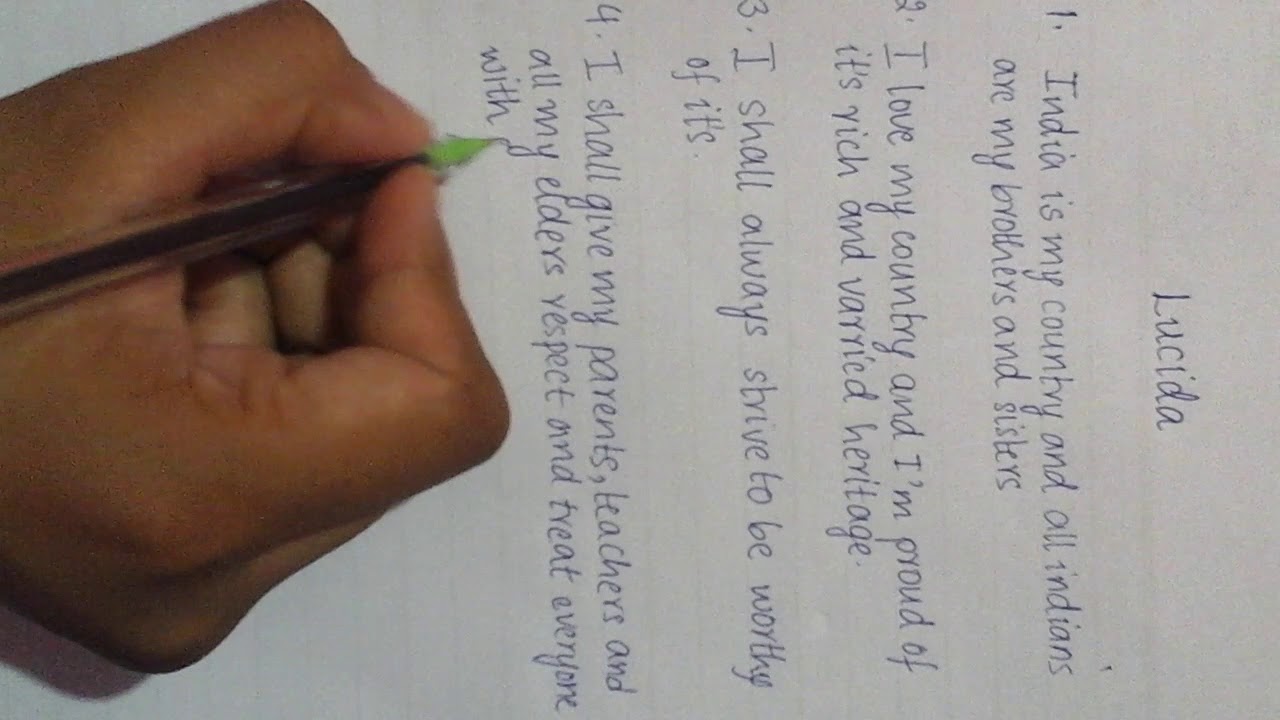 Lucida
1. India is my country and all indians
are my brothers and sisters
2. I love my country and I'm proud of
it's rich and varried heritage.
3. I shall always strive to be worthy
of it's.
4. I shall give my parents, teachers and
all my elders respect and treat everyone
with